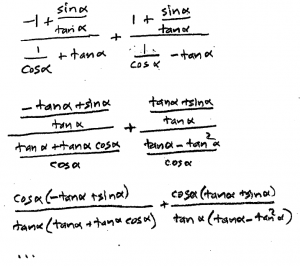 \frac{-1+\frac{sinα}{tanα}}{\frac{1}{cosα}+tanα} + \frac{1+\frac{sinα}{tanα}}{\frac{1}{cosα}-tanα}
\frac{\frac{-tanα+sinα}{tanα}}{\frac{tanα+tanα cosα}{cosα}} + \frac{\frac{tanα+sinα}{tanα}}{\frac{tanα-tan^2α}{cosα}}
\frac{cosα(-tanα+sinα)}{tanα(tanα+tanα cosα)} + \frac{cosα(tanα+sinα)}{tanα(tanα-tan^2α)}
...